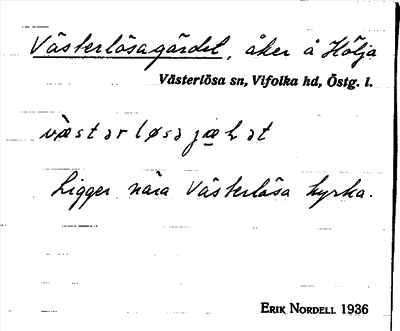 Västerlösagärdet, åker å Hölja
Västerlösa sn, Vifolka hd, Östg. l.
Ligger nära Västerlösa kyrka.
ERIK NORDELL 1936